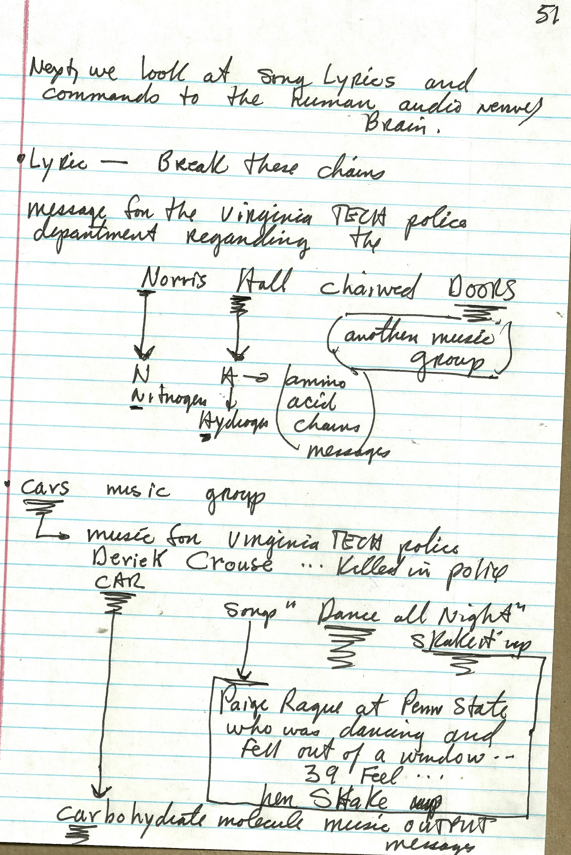 51
Next, we look at song Lyrics and
commands to the human audio nerves/
Brain.
• Lyric — Break these chains
message for the Virginia TECH police
department regarding the
Norris Hall chained DOORS
(another music
group)
N
Nitrogen
H → amino
acid
chains
messages
Hydrogen
• Cars music group
music for Virginia TECH police
Deriek Crouse ... killed in police
CAR
songs "Dance all Night"
Shake it up
Paige Raque at Penn State
who was dancing and
fell out of a window...
39 Feet ....
her SHake up
carbohydrate molecule music OUTPUT
messages